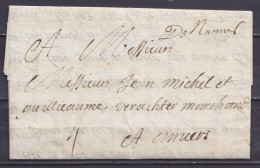 De Namur
A Messieur
Messieur Jean Michel et
guilleaume verachter marchand
4
A anvers